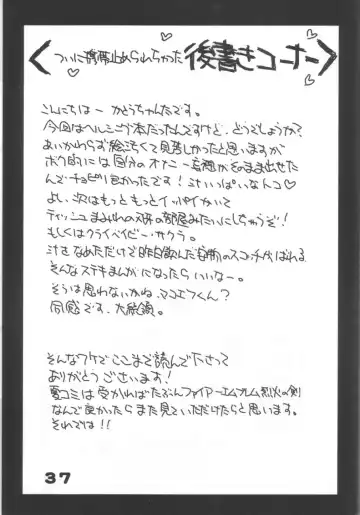 ついに携帯止められちゃった後書きコーナー
こんにちはー かとうちゃんたです。
今回はヘルシング本だったんですけど、どうでしょうか?
あいかわらず絵汚くて見苦しかったと思いますが
ボク的には自分のオナニー妄想がそのまま出せた
んでチョピリ良かったです! 汁いっぱいなんコ♡
よし、次はもっともっとイッパイかいて
ティッシュまみれの の部屋みたいにしちゃうぞ!
もしくはクライベイビー・サクラ。
汁をなめただけで昨日飲んだ のスコッチ代ばれる
そんなステキまんがになったらいいなー。
そうは思わないかね、マコエフくん?
同感です、大統領。
そんなワケでここまで読んで下さって
ありがとうございます!
夏コミは受かればたぶんファイアーエムブレム烈火の剣
なんで良かったらまた見ていただけたらと思います。
それでは!!
37